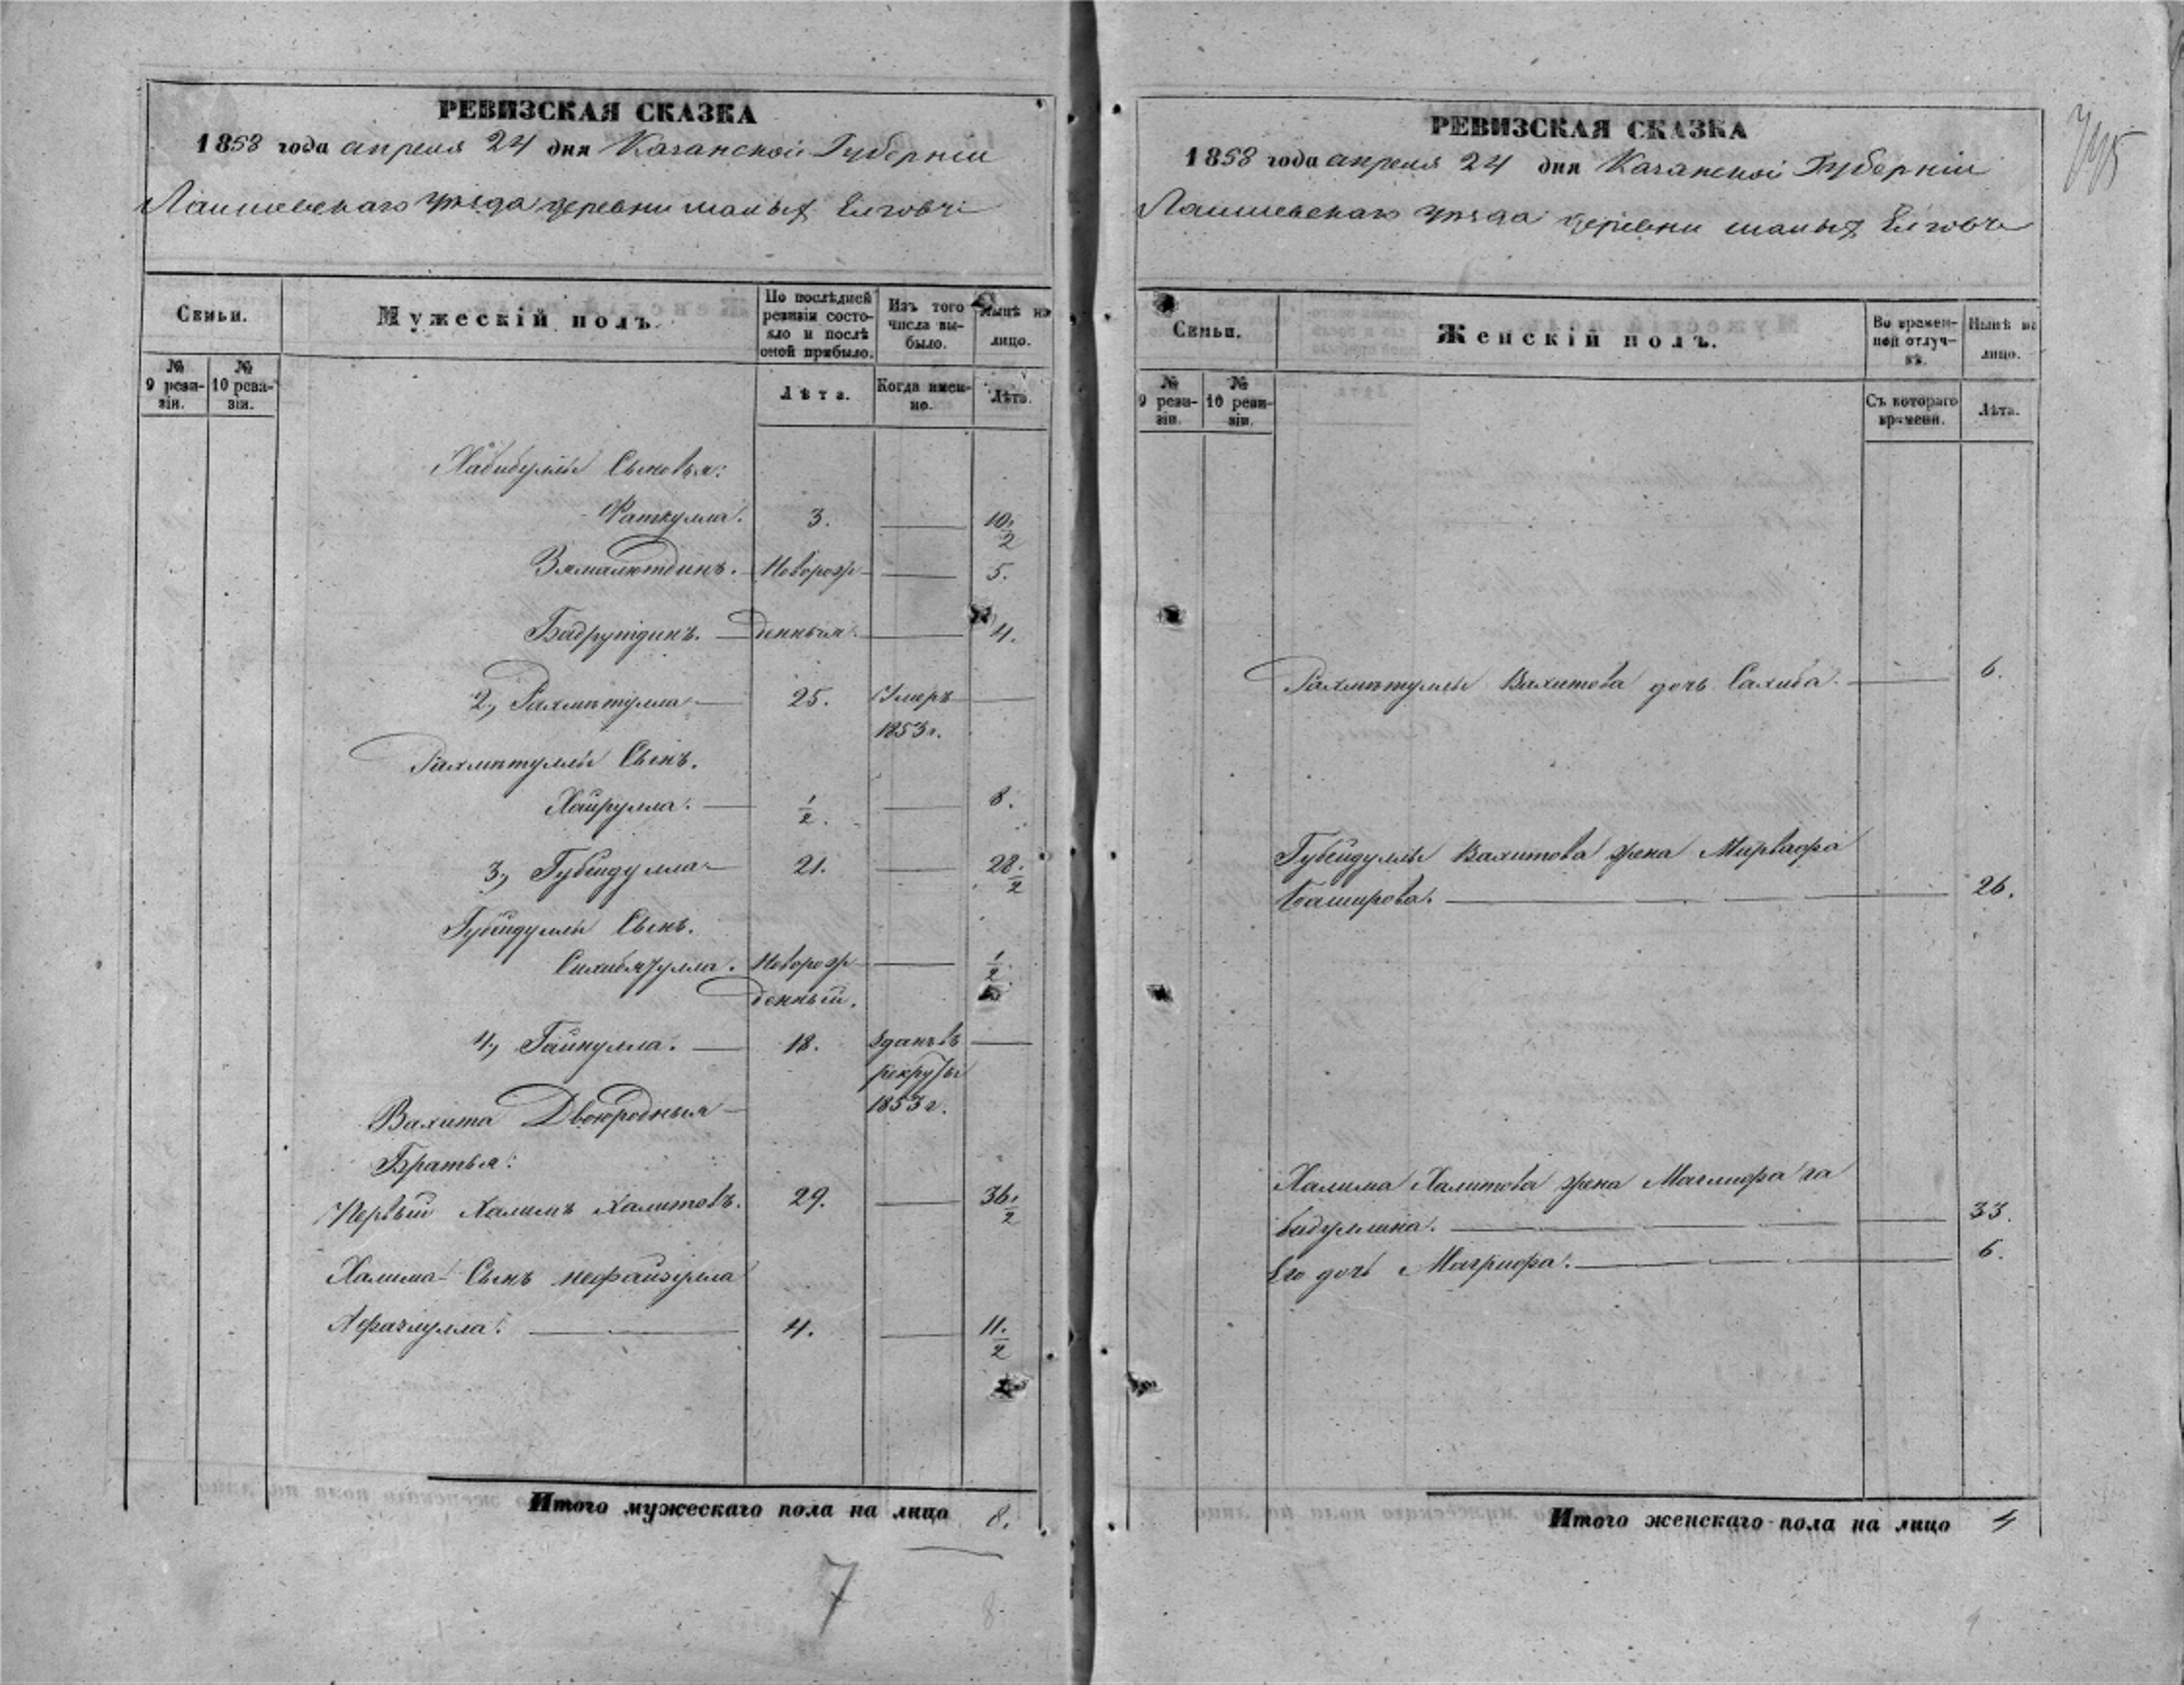 РЕВИЗСКАЯ СКАЗКА
1858 года апреля 24 дня Казанской Губерніи
Лаишевскаго уѣзда деревни малых Елговъ
Семьи.
Мужескій полъ.
По послѣдней ревизіи состояло и послѣ оной прибыло.
Изъ того числа выбыло.
Нынѣ на лицо.
№ 9 ревизіи.
№ 10 ревизіи.
Лѣта.
Когда именно.
Лѣта.
Хабибуллы Сыновья:
Фаткулла. 3. 10 1/2
Зямалютдинъ. Новорож 5.
Бадрутдинъ. денныя. 4.
2, Рахматулла 25. Умеръ
1853 г.
Рахматуллы Сынъ.
Хайрулла. 1/2. 8.
3, Губейдулла 21. 28 1/2
Губейдуллы Сынъ.
Новорож 1/2
денный.
4, Гайнулла. 18. Зданъ въ
рекруты
Вахита Двоюродныя 1853 г.
Братья:
Первый Халимъ Халитовъ. 29. 36 1/2
Халима Сынъ
4. 11 1/2
Итого мужескаго пола на лицо 8.
7
8
РЕВИЗСКАЯ СКАЗКА
1858 года апреля 24 дня Казанской Губерніи
Лаишевскаго уѣзда деревни малых Елговъ
Семьи.
Женскій полъ.
Во временной отлучкѣ.
Нынѣ на лицо.
№ 9 ревизіи.
№ 10 ревизіи.
Съ котораго времени.
Лѣта.
Рахматуллы Вахитова дочь Сахиба. 6.
Губейдуллы Вахитова жена
Баширова. 26.
Халима Халитова жена
бадуллина. 33.
Его дочь 6.
Итого женскаго пола на лицо 4